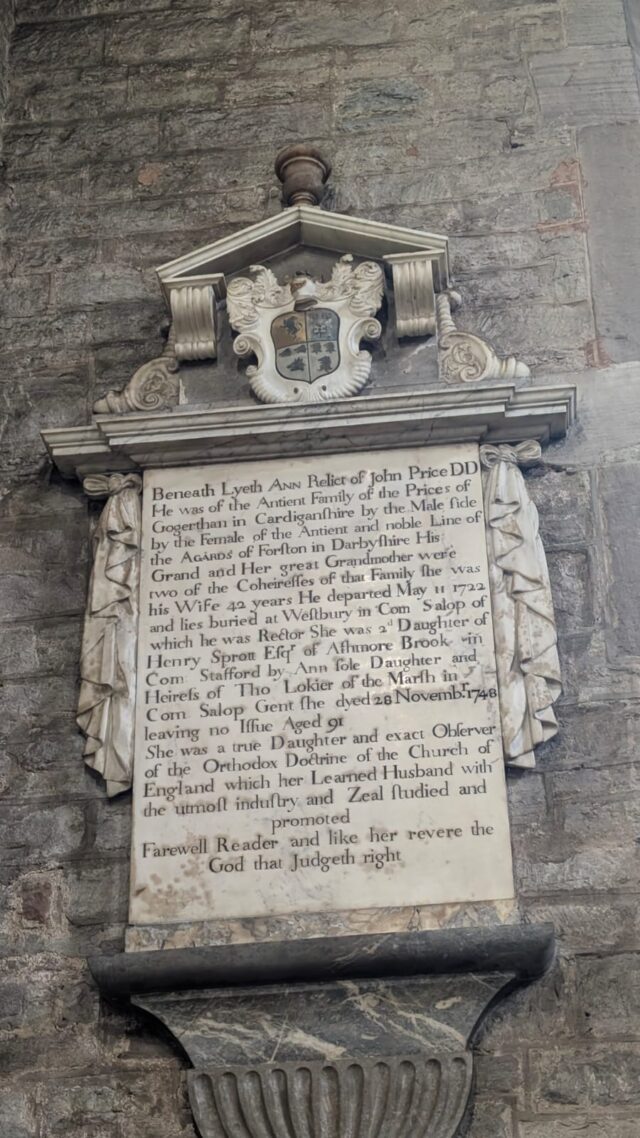 Beneath Lyeth Ann Relict of John Price DD
He was of the Antient Family of the Prices of
Gogerthan in Cardiganſhire by the Male ſide
by the Female of the Antient and noble Line of
the Agards of Forſton in Darbyſhire His
Grand and Her great Grandmother were
two of the Coheireſſes of that Family ſhe was
his Wife 42 years He departed May 11 1722
and lies buried at Weſtbury in Com Salop of
which he was Rector She was 2d Daughter of
Henry Sprott Eſqr of Aſhmore Brook in
Com Stafford by Ann ſole Daughter and
Heireſs of Tho Lokier of the Marſh in
Com Salop Gent ſhe dyed 28 Novembr 1748
leaving no Iſſue Aged 91
She was a true Daughter and exact Obſerver
of the Orthodox Doctrine of the Church of
England which her Learned Husband with
the utmoſt induſtry and Zeal ſtudied and
promoted
Farewell Reader and like her revere the
God that Judgeth right